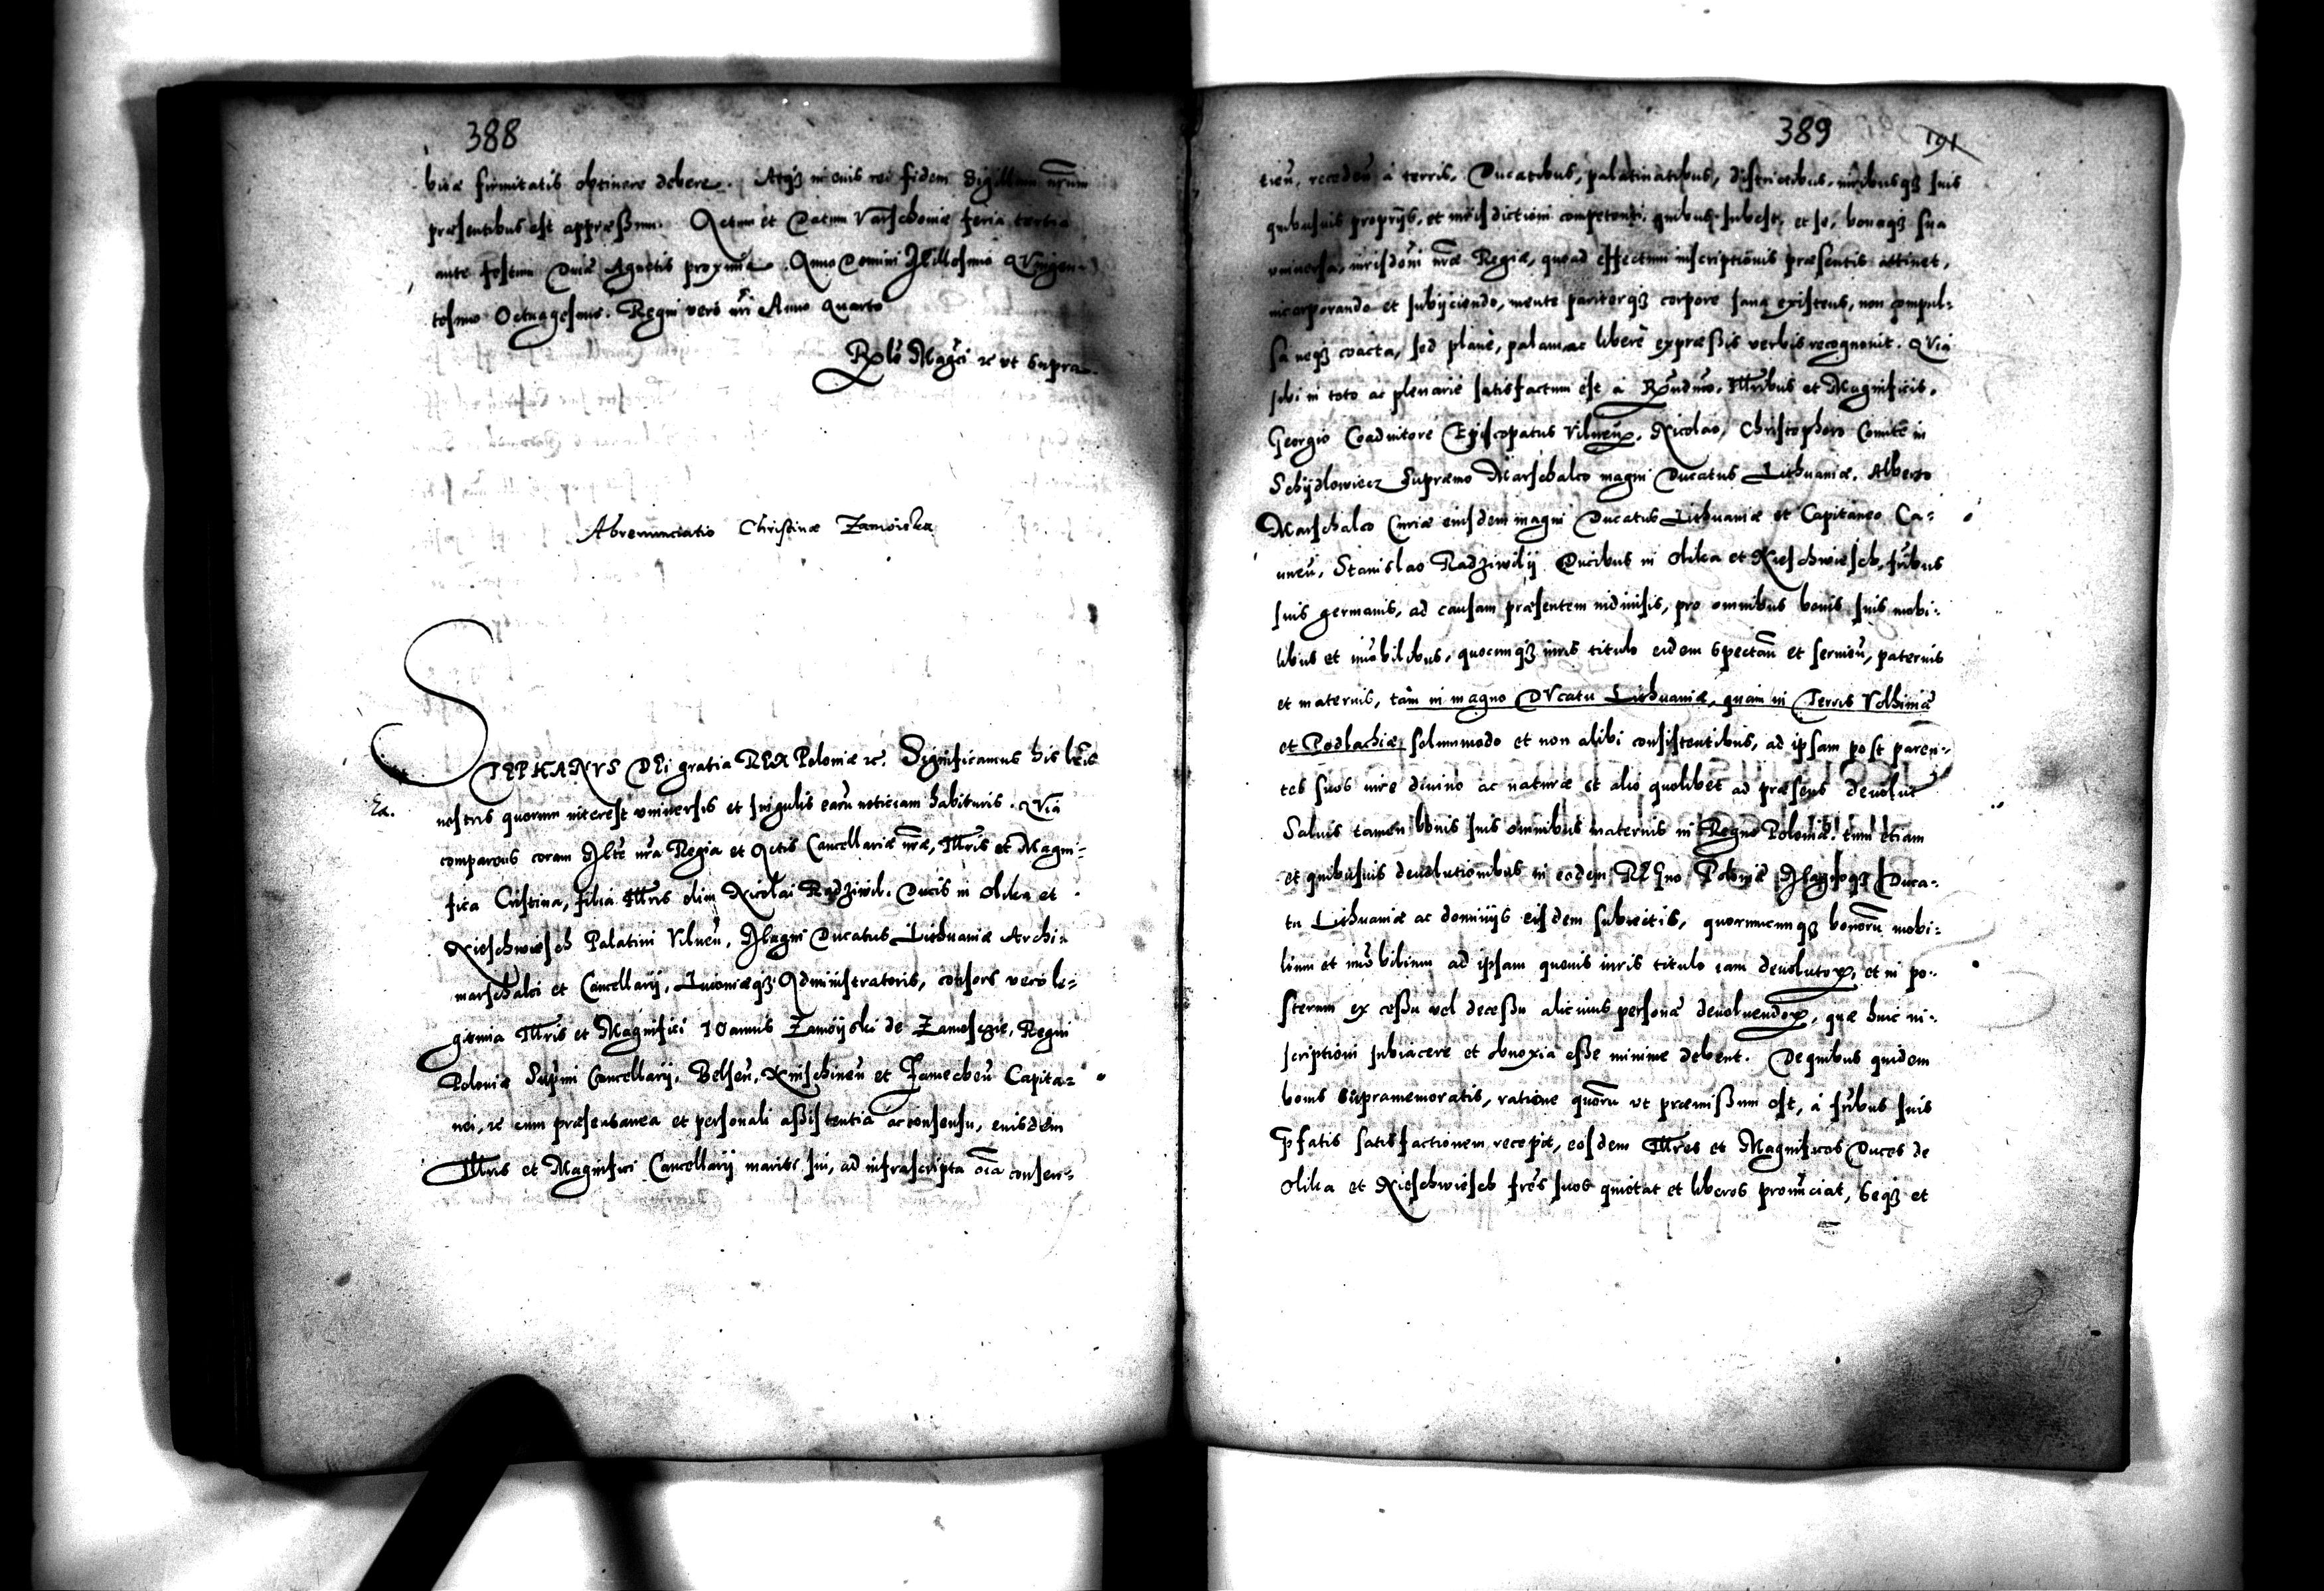 388
bitae firmitatis obtinere debere. Atqз in cuius rei fidem Sigillum nrum
praesentibus est appraeßum. Actum et Datum Varschoviae feria tertia
ante festum Divae Agnetis proxima. Anno Domini Millesimo Qvingen-
tesimo Octuagesimo. Regni vero nri Anno quarto
Rplō Magci rc ut supra.
Abrenunciatio Christinae Zamoiska
STEPHANVS DEi gratia REX Poloniae rc. Significamus his lris
Ea.
nostris quorum interest vniuersis et singulis earū noticiam habituris. QVia
comparens coram Mte nra Regia et Actis Cancellariae nrae, Illris et Magni-
fica Cristina, filia Illris olim Nicolai Radziwil. Ducis in Olika et
Nieschwiesch Palatini Vilneū, Magni Ducatus Lithuaniae Archi-
marschalci et Cancellarij, Liuoniaeqз Administratoris, consors vero le-
gitimia Illris et Magnifici Ioannis Zamoijski de Zamosczie, Regni
Poloniae Supmi Cancellarij, Belseū, Knischineū et Zamecheū Capita-
nei, rc cum praesentanea et personali aßistentia ac consensu, eiusdem
Illris et Magnifici Cancellarij mariti sui, ad infrascripta oīa consen-
389
191
tieū, recedeū à terris, Ducatibus, palatinatibus, districtibus, iuribusqз suis
quibusuis proprijs, et iurisdictioni competenti, quibus subest, et se, bonaqз sua
vniuersa, iurisdoni nrae Regiae, quoad effectum inscriptionis praesentis attinet,
incorporando et subijciendo, mente pariterqз corpore sana existens, non compul-
sa neqз coacta, sed planè, palam ac liberè expraeßis verbis recognouit. QVia
sibi in toto ac plenariè satisfactum est à Rēndmo, Illribus et Magnificis,
Georgio Coadiutore Episcopatus Vilneū, Nicolao, Christophoro Comite in
Schijdlowiecz Supraemo Marschalco magni Ducatus Lithuaniae, Alberto
Marschalco Curiae eiusdem magni Ducatus Lithuaniae et Capitaneo Ca-
uneū, Stanislao Radziwilij Ducibus in Olika et Nieschwiesch, fribus
suis germanis, ad causam praesentem indiuisis, pro omnibus bonis suis mobi-
libus et imōbilibus, quocunqз iuris titulo eidem spectan et serūieū, paternis
et maternis, tàm in magno DVcatu Lithuaniae, quàm in Terris Volhiniae
et Podlachiae solummodo et non alibi consistentibus, ad ipsam post paren-
tes suos iure diuino ac naturae et alio quolibet ad praesens deuolut
Saluis tamen bonis suis omnibus maternis in Regno Poloniae. tum etiam
et quibusuis deuolutionibus in eodem REgno Poloniae Magnoqз Duca-
tu Lithuaniae ac dominijs eisdem subiectis, quorumcunqз bonorū mobi-
lium et imōbilium ad ipsam quouis iuris titulo iam deuolutoꝝ, et in po-
sterum ex ceßu vel deceßu alicuius personae deuoluendoꝝ, quae huic in-
scriptioni subiacere et obnoxia eße minime debent. De quibus quidem
bonis supramemoratis, ratione quorū vt praemißum est, à fribus suis
pfatis satisfactionem recepit, eosdem Illres et Magnificos Duces de
Olika et Nieschwiesch fres suos quietat et liberos pronūciat, seqз et